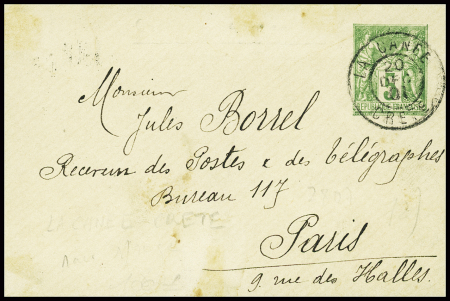 LA CANEE
20
DEC
CRETE
5
REPUBLIQUE FRANCAISE
Monsieur
Jules Borrel
Receveur des Postes & des Télégraphes
Bureau 117
Paris
9 rue des Halles.